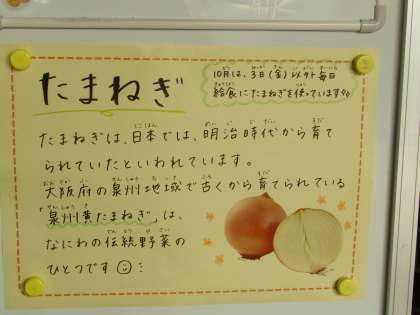 たまねぎ
10月は、3日(金)以外毎日
給食にたまねぎを使っています!!
たまねぎは、日本では、明治時代から育て
られていたといわれています。
大阪府の泉州地域で古くから育てられている
「泉州黄たまねぎ」は、
なにわの伝統野菜の
ひとつです